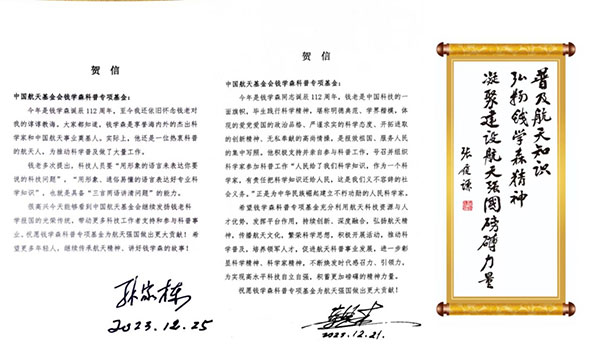 贺信
中国航天基金会钱学森科普专项基金：
今年是钱学森诞辰 112 周年，至今我还依旧怀念钱老对我
的谆谆教诲。大家都知道，钱学森是享誉海内外的杰出科
学家和中国航天事业奠基人。实际上，他还是一位热衷科普
的航天人，为推动科学普及做了大量工作。
钱老多次提出，科技人员要“用形象的语言来表达你要
说的科技问题”，“用形象、通俗易懂的语言表达好专业科
学知识”，也就是具备“三言两语讲清问题”的能力。
很高兴今天能够看到中国航天基金会继续发扬钱老科
学报国的光荣传统，帮助更多科技工作者支持和参与科普事
业。祝愿钱学森科普专项基金为航天强国做出更大贡献！希
望更多年轻人，继续传承航天精神、讲好钱学森的故事！
孙家栋
2023.12.25
贺信
中国航天基金会钱学森科普专项基金：
今年是钱学森同志诞辰 112 周年。钱老是中国科技界的
一面旗帜，毕生践行科学精神，堪称明德典范、学界楷模。体
现的爱党爱国的政治品格、严谨求实的科学态度、开拓进取
的创新精神、无私奉献的高尚情操，是报效祖国、服务人民
的集中写照。他积极支持并亲自参与科普工作，号召并组织
科学家参与科普工作“人民给了我们科学知识，作为一个科
学家，有责任把科学知识还给人民，这是我们义不容辞的社
会义务。”正是为中华民族崛起建立不朽功勋的人民科学家。
希望钱学森科普专项基金充分利用航天科技资源与人
才优势，发挥平台作用，持续创新、深度融合，弘扬航天精
神，传播航天文化，繁荣科学思想。积极开展活动，推动科
学普及，培养领军人才，促进航天科普事业发展，进一步彰
显科学精神、科学家精神，不断焕发时代感召力、引领力，
为实现高水平科技自立自强，积蓄更加磅礴的精神力量。
祝愿钱学森科普专项基金为航天强国做出更大贡献！
2023.12.21.
普及航天知识
弘扬钱学森精神
凝聚建设航天强国磅礴力量
张履谦